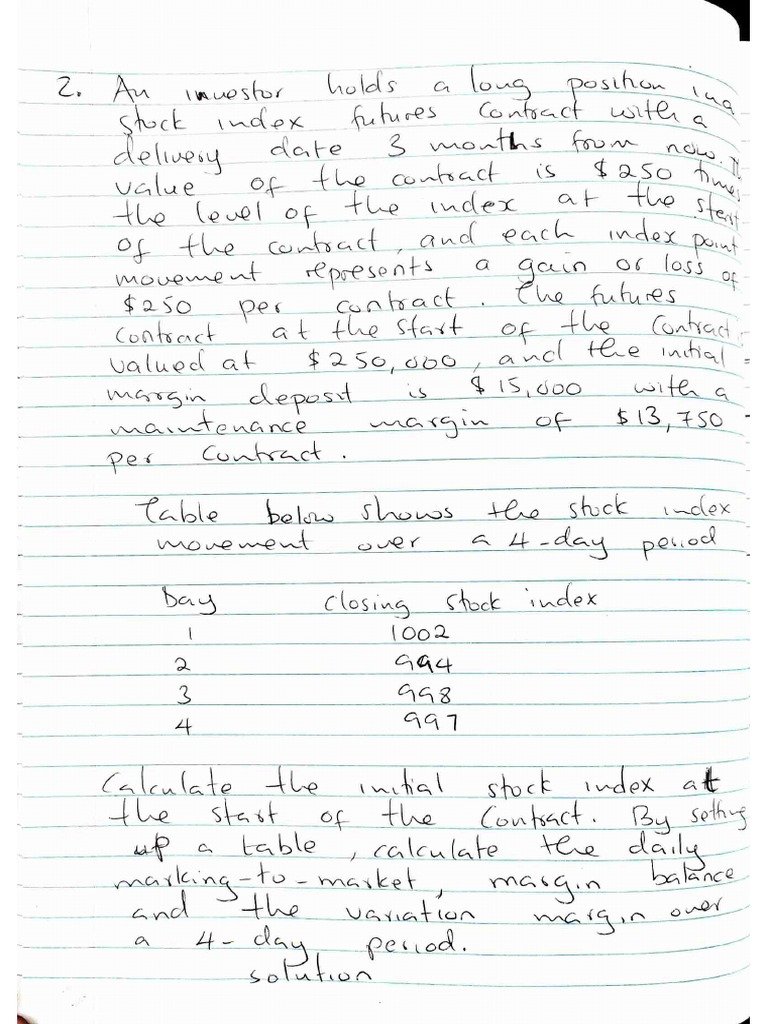 2. An investor holds a long position in a
stock index futures contract with a
delivery date 3 months from now.
value of the contract is $250 times
the level of the index at the start
of the contract, and each index point
movement represents a gain or loss of
$250 per contract. The futures
contract at the start of the contract
valued at $250,000, and the initial
margin deposit is $15,000 with a
maintenance margin of $13,750
per contract.
Table below shows the stock index
movement over a 4-day period
Day Closing stock index
1 1002
2 994
3 998
4 997
Calculate the initial stock index at
the start of the contract. By setting
up a table, calculate the daily
marking-to-market, margin balance
and the variation margin over
a 4-day period.
solution